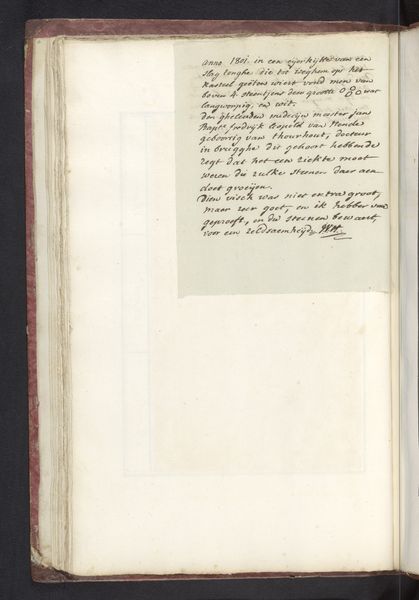 anno 1801. in een eyerkytte van een
slag tonghe die tot Zeeghem op het
kasteel geëten wiert vond men van
boven 4. steentjens deze groote 080 wat
langworpig, en wit.
den gheleerden medecijn meester jan
Bapt.ª frodrijk leopold van Hende
geboortig van thourhout, docteur
in brugghe dit gehoort hebbende
zegt dat het een ziekte moet
wezen die zulke steenen daer aen
doet groeijen.
Dien visch was niet extra groot,
maer zeer goet, en ik hebber van
geproeft, en de steenen bewaert,
voor een zeldsaemheyd,